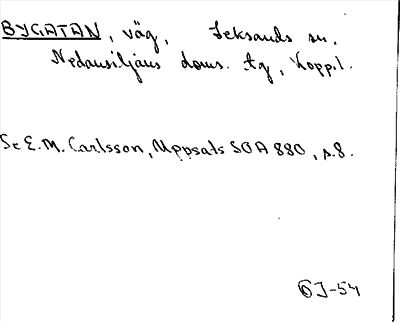 BYGATAN, väg, Leksands sn.
Nedansiljans doms. tg, Kopp.l.
Se E.M. Carlsson, Uppsats SOA 880, s.8.
OJ-54